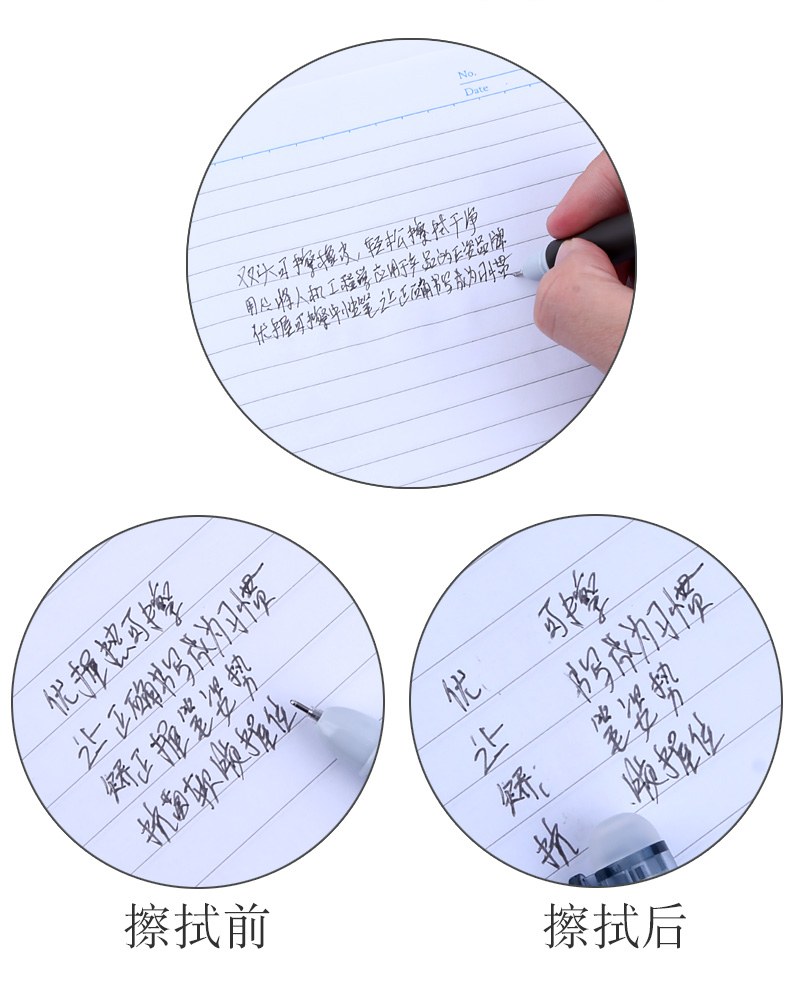 No.
Date
双头可擦橡皮,轻松擦拭干净
用心将人机工程学应用于产品的正姿品牌
优握可擦中性笔让正确书写成为习惯
优握按可擦
让正确书写成为习惯
矫正握笔姿势
抗菌软胶握位
优 可擦
让 书写成为习惯
矫 笔姿势
抗 胶握位
擦拭前
擦拭后